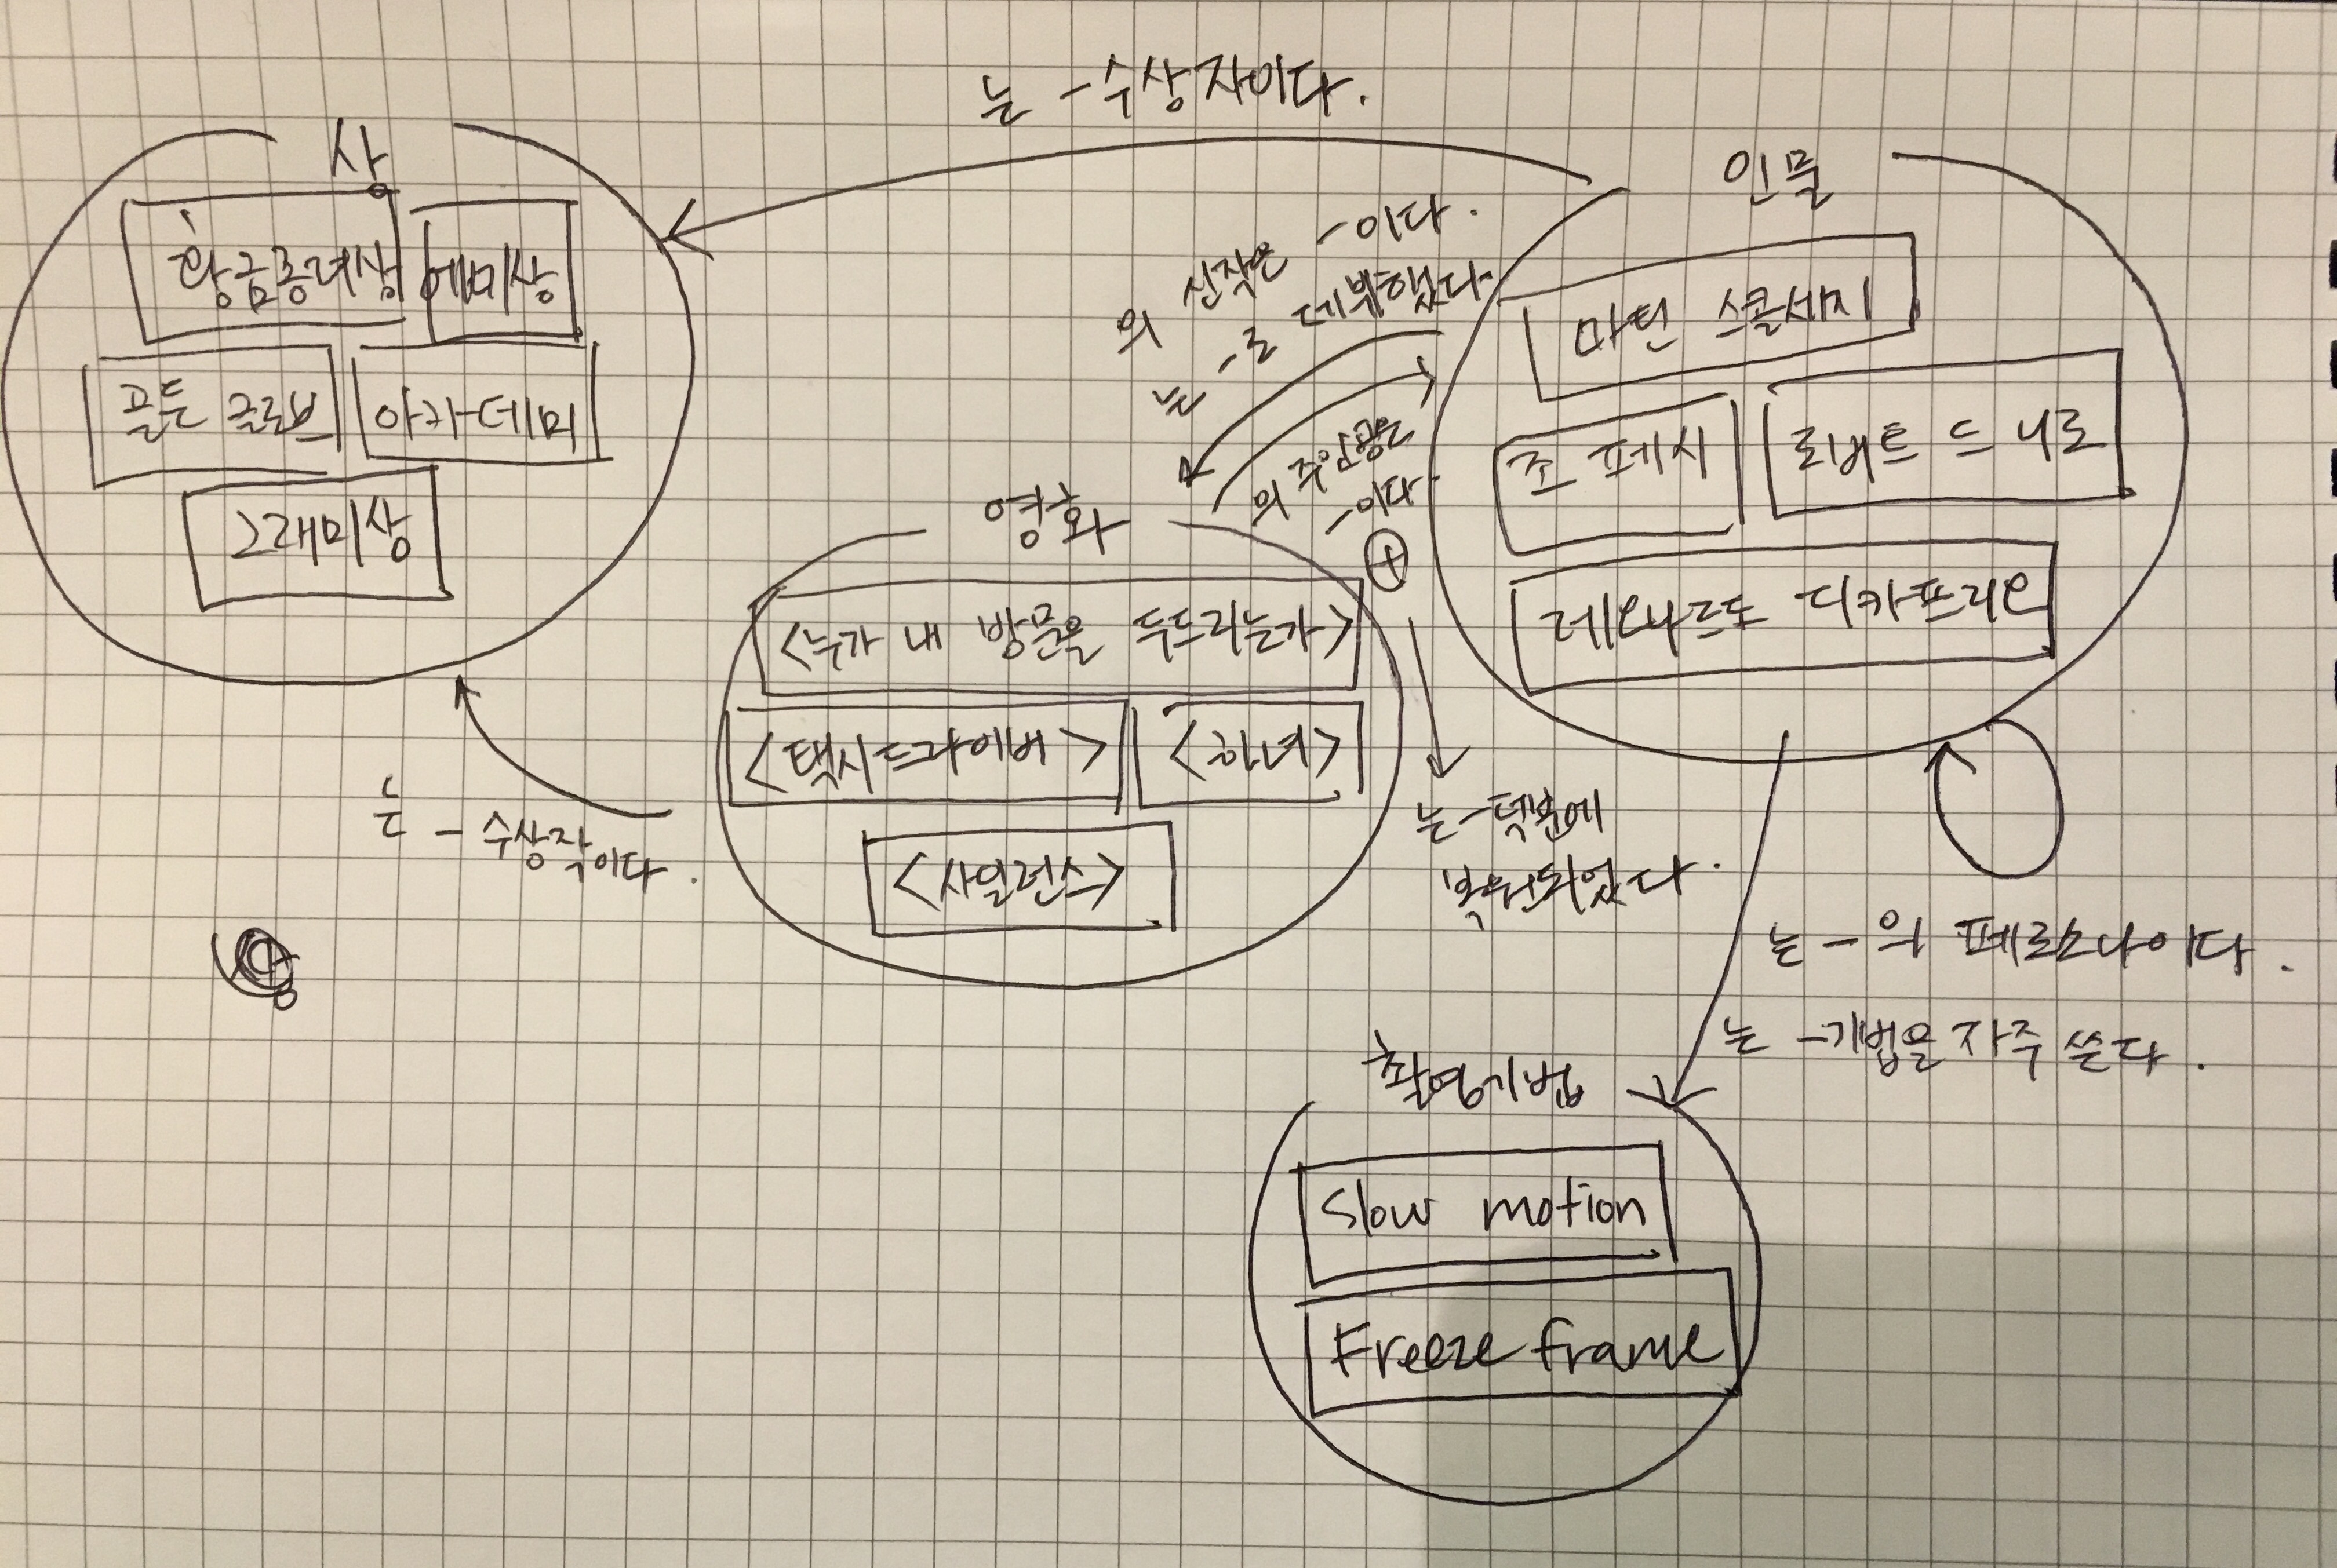 는 -수상자이다.
상
황금종려상
에미상
골든 글로브
아카데미
그래미상
인물
마틴 스콜세지
조 페시
로버트 드 니로
레오나르도 디카프리오
의 신작은 -이다.
는 -로 데뷔했다.
의 주인공은
-이다
+
는 -덕분에
복원되었다.
영화
<누가 내 방문을 두드리는가>
<택시드라이버>
<하녀>
<사일런스>
는 - 수상작이다.
는 -의 페르소나이다.
는 -기법을 자주 쓴다.
촬영기법
Slow motion
Freeze frame